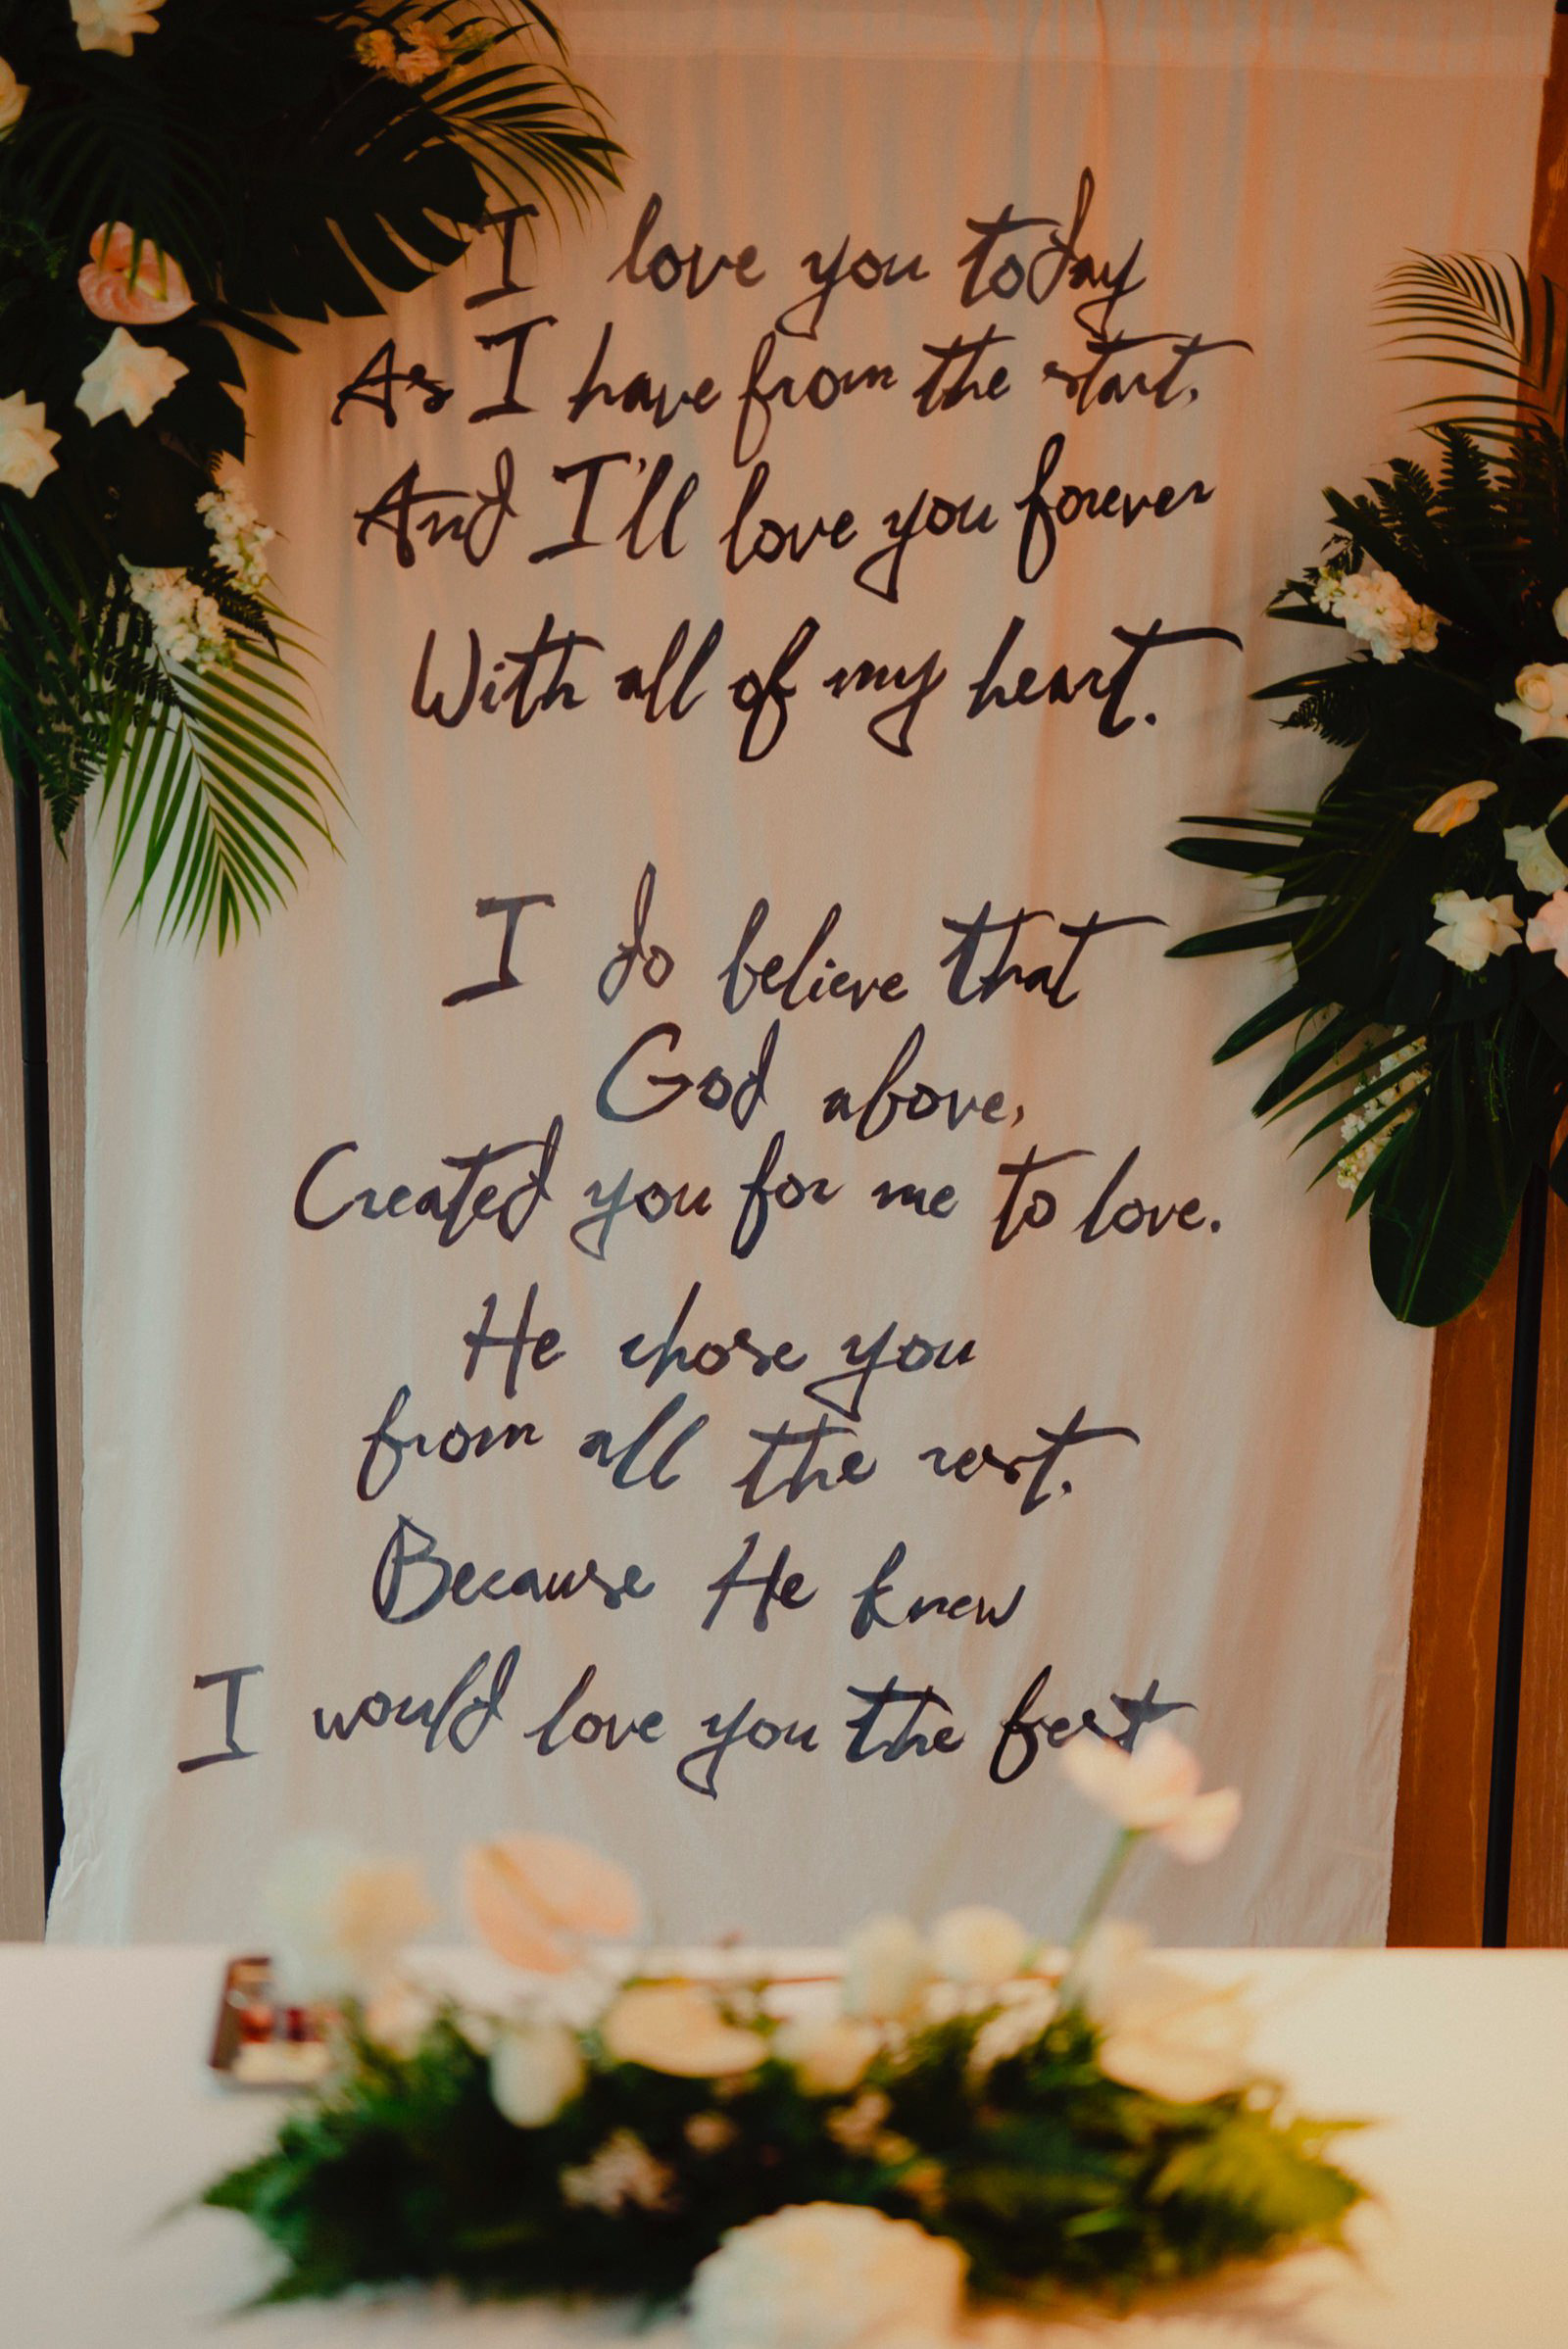 I love you today
As I have from the start,
And I'll love you forever
With all of my heart.
I do believe that
God above,
Created you for me to love.
He chose you
from all the rest,
Because He knew
I would love you the best